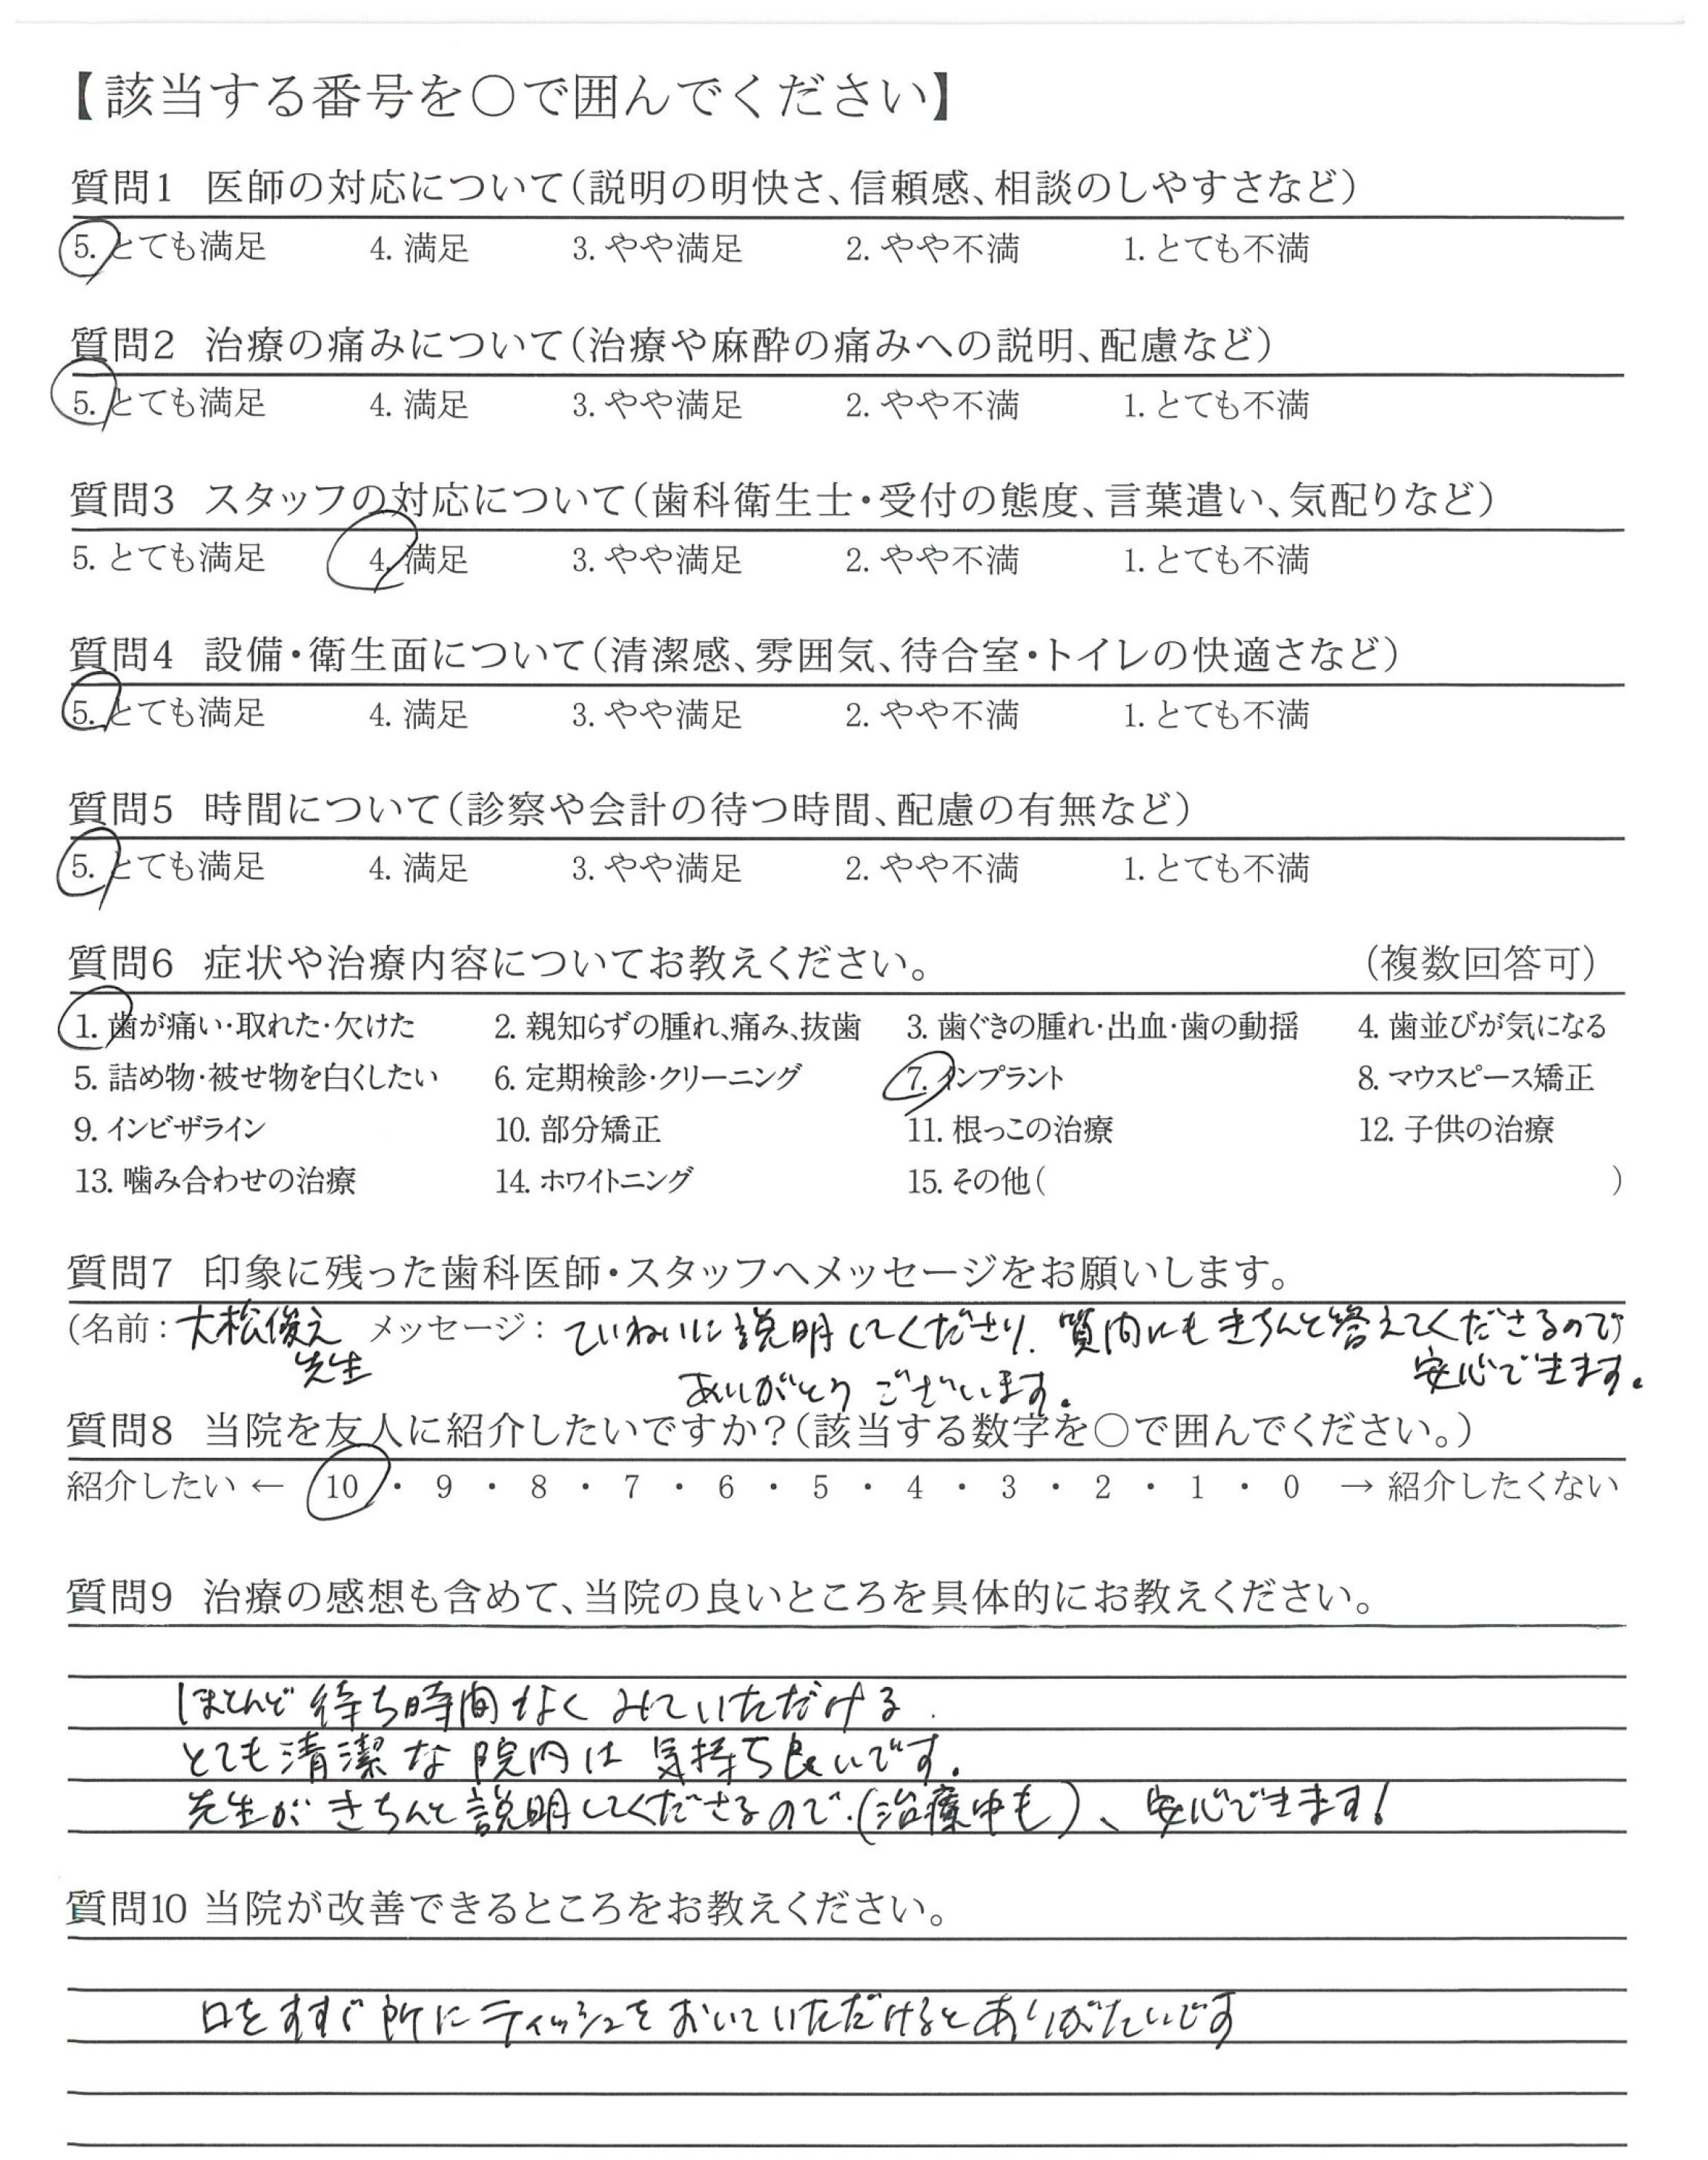 【該当する番号を○で囲んでください】
質問1 医師の対応について（説明の明快さ、信頼感、相談のしやすさなど）
5. とても満足 4. 満足 3. やや満足 2. やや不満 1. とても不満
質問2 治療の痛みについて（治療や麻酔の痛みへの説明、配慮など）
5. とても満足 4. 満足 3. やや満足 2. やや不満 1. とても不満
質問3 スタッフの対応について（歯科衛生士・受付の態度、言葉遣い、気配りなど）
5. とても満足 4. 満足 3. やや満足 2. やや不満 1. とても不満
質問4 設備・衛生面について（清潔感、雰囲気、待合室・トイレの快適さなど）
5. とても満足 4. 満足 3. やや満足 2. やや不満 1. とても不満
質問5 時間について（診察や会計の待つ時間、配慮の有無など）
5. とても満足 4. 満足 3. やや満足 2. やや不満 1. とても不満
質問6 症状や治療内容についてお教えください。 （複数回答可）
1. 歯が痛い・取れた・欠けた 2. 親知らずの腫れ、痛み、抜歯 3. 歯ぐきの腫れ・出血・歯の動揺 4. 歯並びが気になる
5. 詰め物・被せ物を白くしたい 6. 定期検診・クリーニング 7. インプラント 8. マウスピース矯正
9. インビザライン 10. 部分矯正 11. 根っこの治療 12. 子供の治療
13. 噛み合わせの治療 14. ホワイトニング 15. その他（ ）
質問7 印象に残った歯科医師・スタッフへメッセージをお願いします。
（名前：大松俊之 メッセージ：ていねいに説明してくださり、質問にもきちんと答えてくださるので）
先生 安心できます。
ありがとうございます。
質問8 当院を友人に紹介したいですか？（該当する数字を○で囲んでください。）
紹介したい ← 10 ・ 9 ・ 8 ・ 7 ・ 6 ・ 5 ・ 4 ・ 3 ・ 2 ・ 1 ・ 0 → 紹介したくない
質問9 治療の感想も含めて、当院の良いところを具体的にお教えください。
ほとんど待ち時間なくみていただける.
とても清潔な院内は気持ち良いです。
先生がきちんと説明してくださるので.(治療中も)、安心できます!
質問10 当院が改善できるところをお教えください。
口をすすぐ所にティッシュをおいていただけるとありがたいです